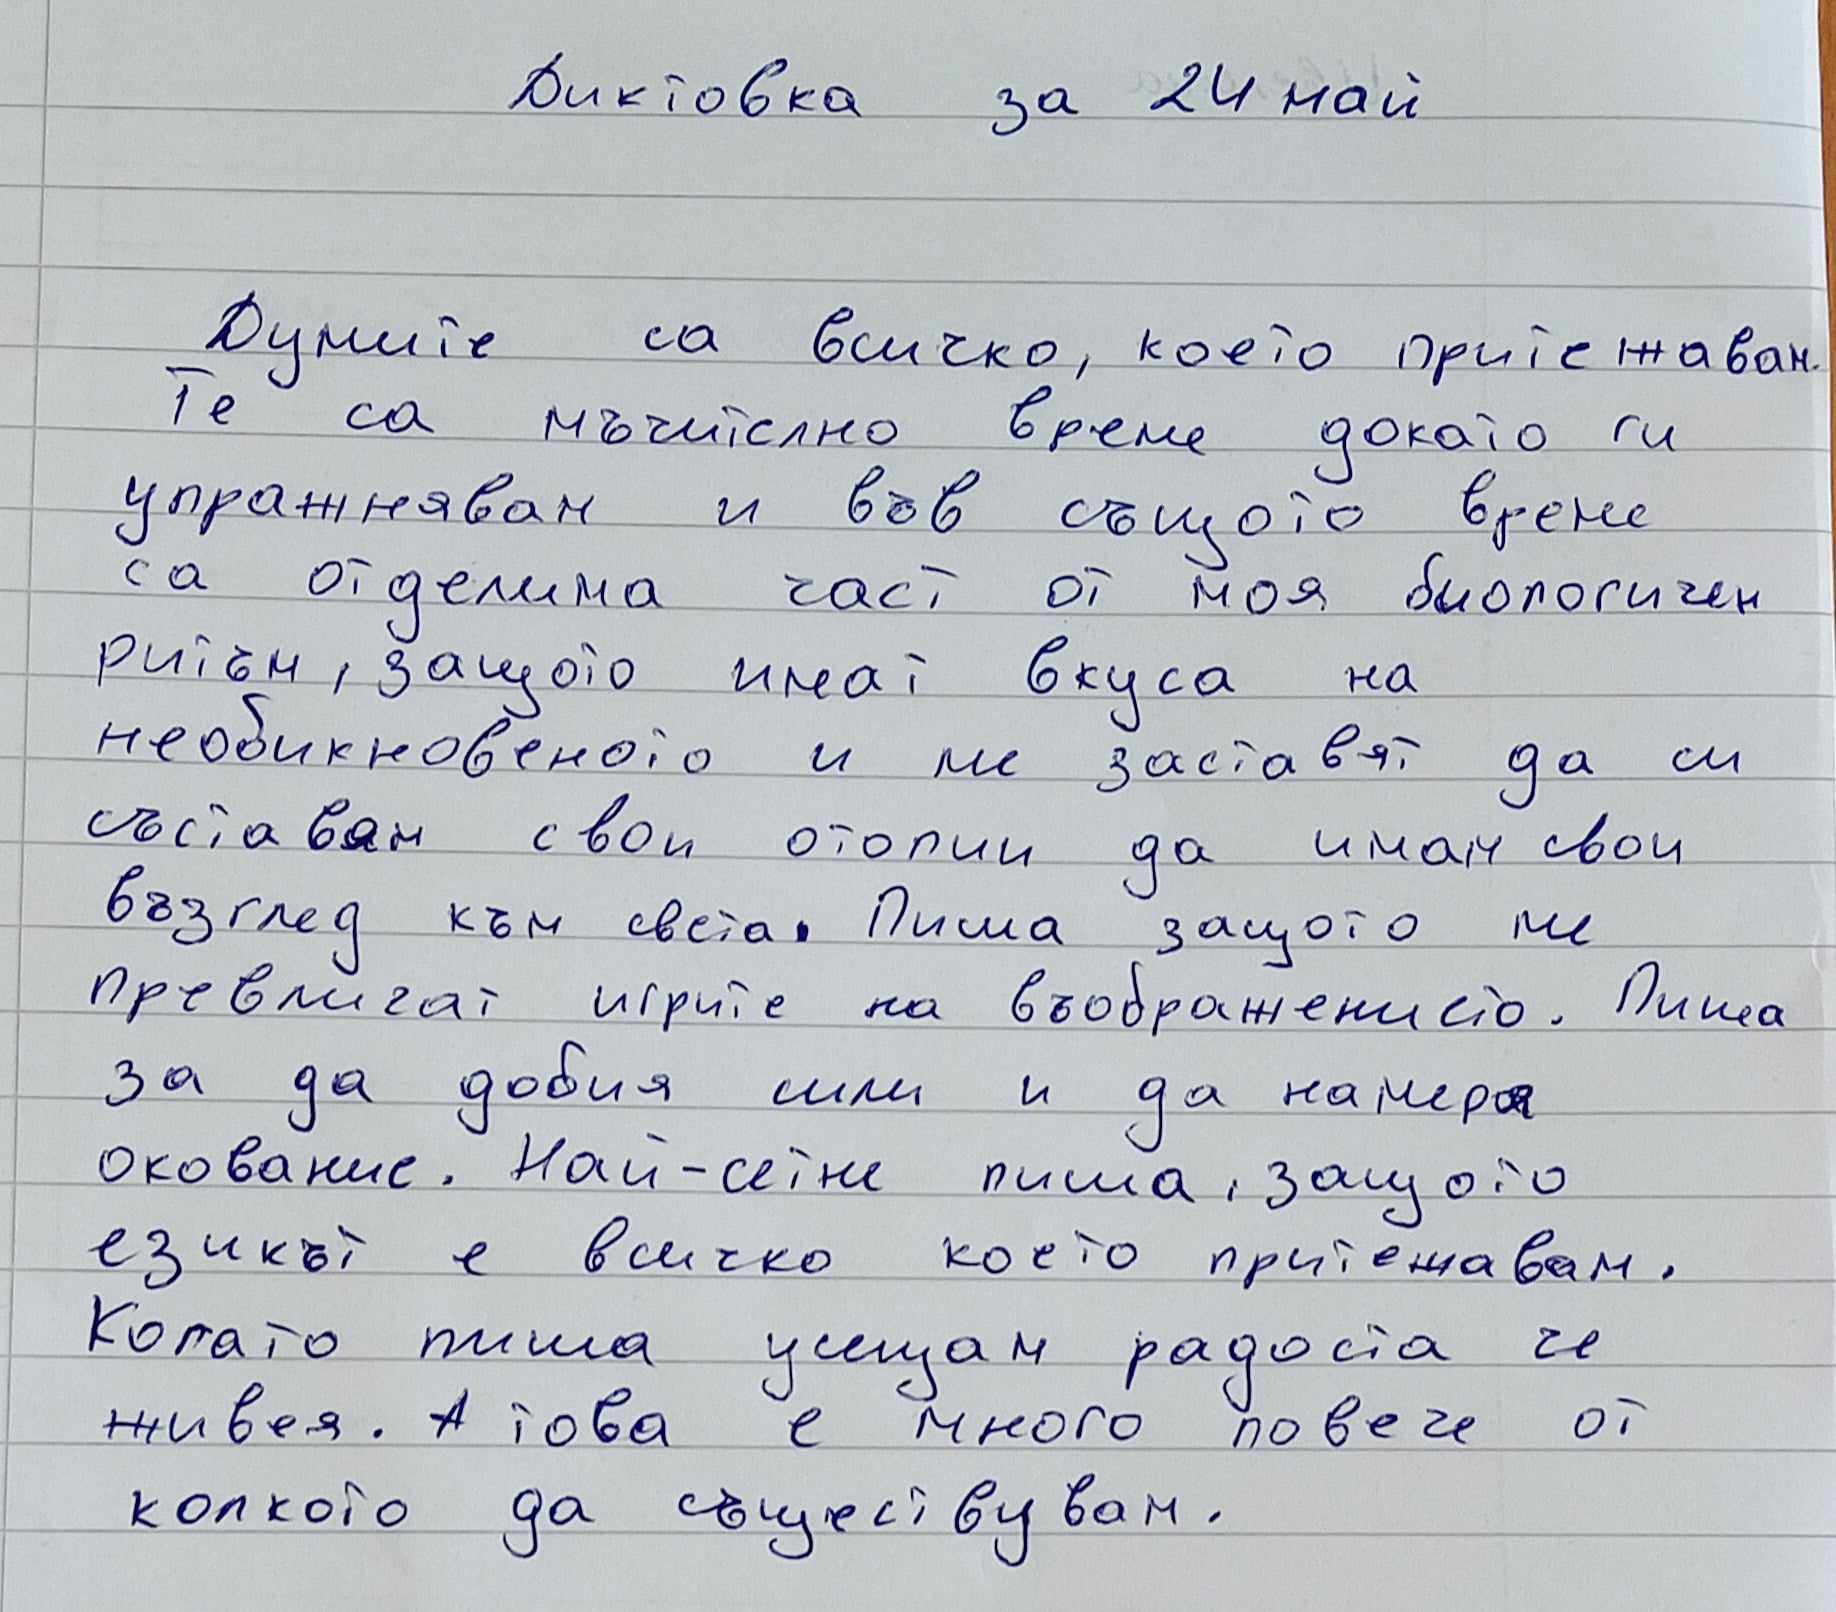 Диктовка за 24 май
Думите са всичко, което притежавам.
Те са мъчително време докато ги
упражнявам и във същото време
са отделима част от моя биологичен
ритъм, защото имат вкуса на
необикновеното и ме заставят да си
съставям свои отопии да имам свои
възглед към света. Пиша защото ме
превличат игрите на въображението. Пиша
за да добия сили и да намеря
окование. Най-сетне пиша, защото
езикът е всичко което притежавам.
Когато пиша усещам радоста че
живея. А това е много повече от
колкото да съществувам.